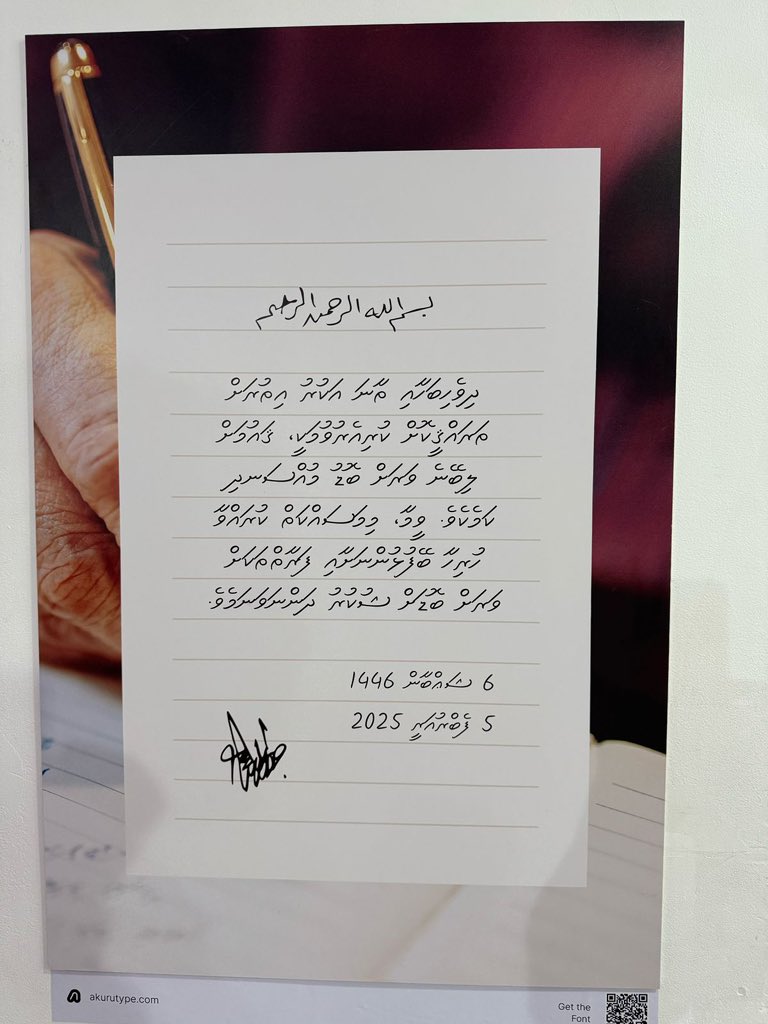 بسم الله الرحمن الرحيم
ދިވެހިބަހާއި ތާނަ އަކުރު އިތުރަށް
ތަރައްޤީކޮށް ކުރިއެރުވުމަކީ، ޤައުމަށް
ލިބޭނެ ވަރަށް ބޮޑު މުއްސަނދި
ކަމެކެވެ. ވީމާ، މިމަސައްކަތް ކުރައްވާ
ހުރިހާ ބޭފުޅުންނަށާއި ފަރާތްތަކަށް
ވަރަށް ބޮޑަށް ޝުކުރު ދަންނަވަނަމެވެ.
6 ޝަޢްބާން 1446
5 ފެބްރުއަރީ 2025
akurutype.com
Get the
Font